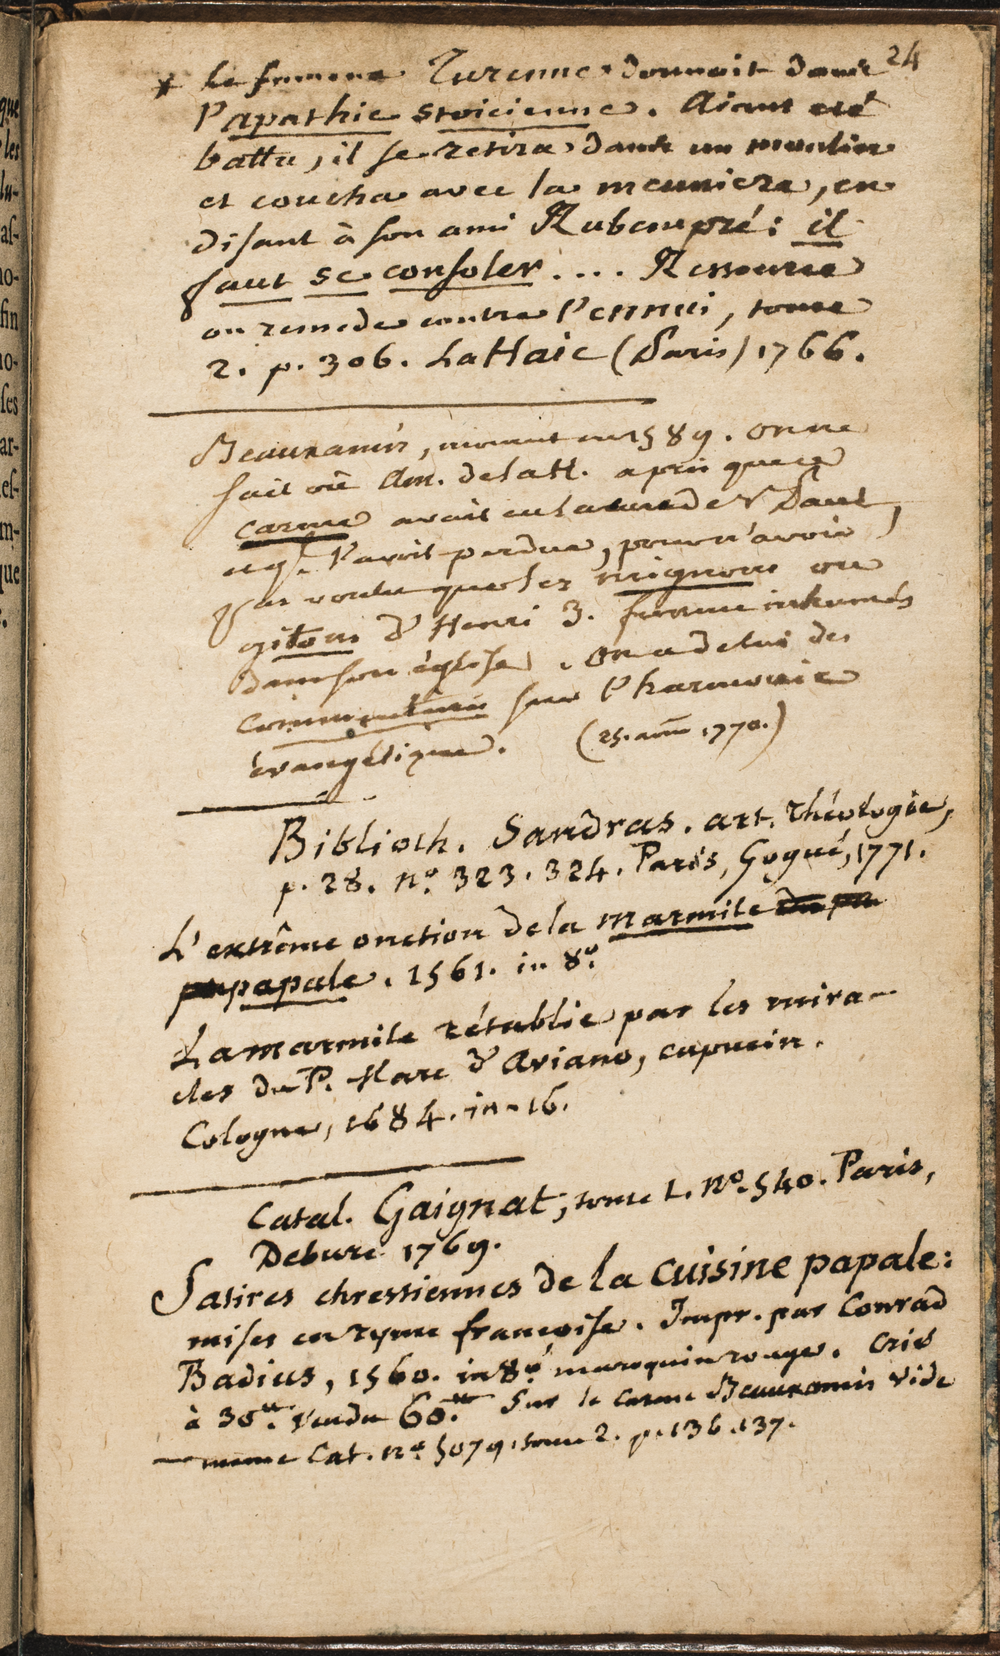 24
* le fameux Turenne donnoit dans
l'apathie stoicienne. Aiant eté
battu, il se retira dans un moulin
et coucha avec la meuniere, en
disant à son ami Rubempré: il
faut se consoler.... Ressource
ou remede contre l'ennui, tome
2. p. 306. La Haie (Paris) 1766.
Beauxamis, mourut en 1589. on ne
sait où Am. de la H. a pris que ce
carme avait eu la cure de St Paul,
et qu'il l'avoit perdue, pour n'avoir
pas voulu que les mignons ou
gitons d'Henri 3. fussent inhumés
dans son église. on a de lui des
commentaires sur l'harmonie
évangélique. (25. 1770.)
Biblioth. Sandras. art. théologie,
p. 28. no. 323. 324. Paris, Gogué, 1771.
L'extrême onction de la marmite
papale. 1561. in 8o.
La marmite rétablie par les mira-
cles du P. Marc d'Aviano, capucin.
Cologne, 1684. in-16.
Catal. Gaignat, tome 1. No. 540. Paris,
Debure 1769.
Satires chrestiennes de la cuisine papale:
mises en ryme françoise. Impr. par Conrad
Badius, 1560. in 8o maroquin rouge. crié
à 30tt. vendu 60.tt Sur le carme Beauxamis vide
même Cat. no. 5079. tome 2. p. 136. 137.
que
les
lu-
as-
no-
fin
no-
ses
ar-
es-
m-
que